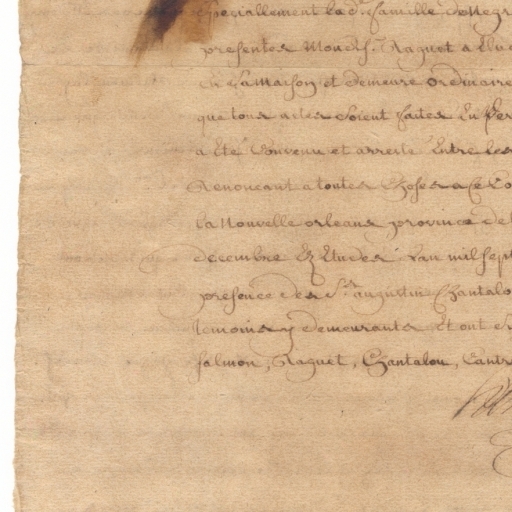 speciallement la de famille de Negr
presentes Mond. S. Raguet a Elu
en sa Maison et demeure ordinaire
que tous actes soient faites En
a Eté Convenu et arresté Entre les
Renoncant a toutes Choses a ce Co
la Nouvelle orleans province de l
decembre Ez Etudes Lan mil sept
presence des Srs augustin Chantalo
temoins y demeurants Et ont
salmon, Raguet, Chantalou,